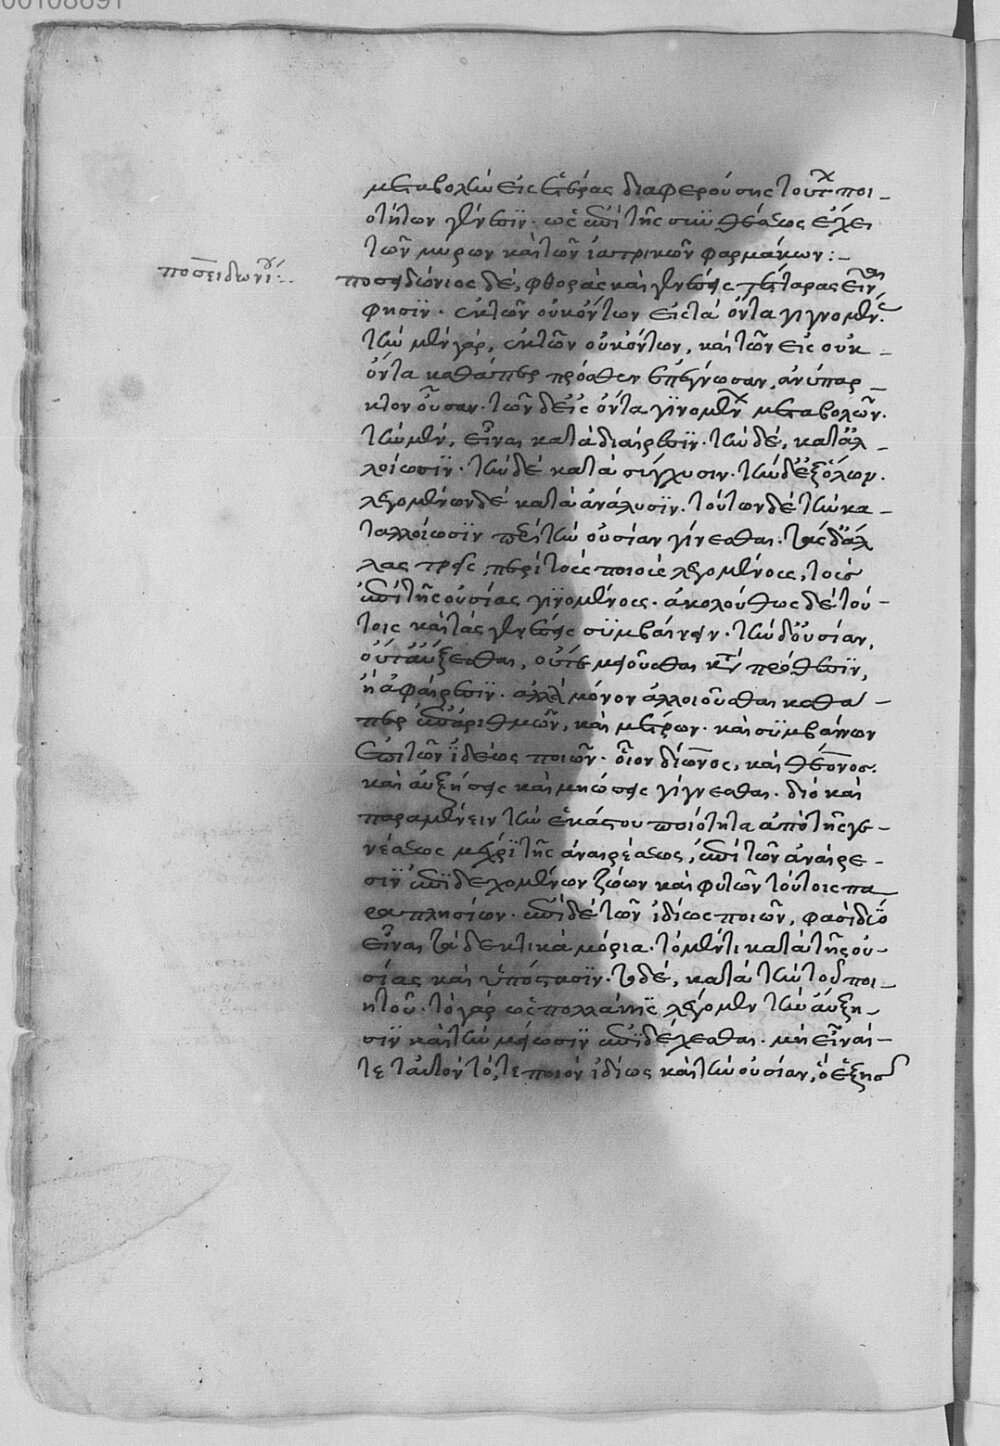 00108691
μεταβολὴν εἰς ἑτέρας διαφερούσης τούτων ποι-
οτήτων γένεσιν· ὡς ἐπὶ τῆς συνθέσεως ἔχει
τῶν μύρων καὶ τῶν ἰατρικῶν φαρμάκων:-
ποσειδωνίου:
ποσειδώνιος δὲ, φθορὰς καὶ γενέσεις τέτταρας εἶναι
φησὶν· ἐκ τῶν οὐκ ὄντων εἰς τὰ ὄντα γιγνομένας·
τὴν μὲν γὰρ, ἐκ τῶν οὐκ ὄντων, καὶ τῶν εἰς οὐκ-
ὄντα καθάπερ πρόσθεν ἐπέγνωσαν, ἀνύπαρ-
κτον οὖσαν· τῶν δ' εἰς ὄντα γινομένων μεταβολῶν·
τὴν μὲν, εἶναι κατὰ διαίρεσιν· τὴν δὲ, κατ' ἀλ-
λοίωσιν· τὴν δὲ κατὰ σύγχυσιν· τὴν δ' ἐξ ὅλων·
λεγομένων δὲ κατὰ ἀνάλυσιν· τούτων δὲ τὴν κα-
τ' ἀλλοίωσιν περὶ τὴν οὐσίαν γίνεσθαι· τὰς δ' ἄλ
λας τρεῖς, περὶ τοὺς ποιοὺς λεγομένους, τοὺς
ἐπὶ τῆς οὐσίας γινομένους· ἀκολούθως δὲ τού-
τοις καὶ τὰς γενέσεις συμβαίνειν· τὴν δ' οὐσίαν,
οὔτ' αὔξεσθαι, οὔτε μειοῦσθαι κατὰ πρόσθεσιν,
ἢ ἀφαίρεσιν· ἀλλὰ μόνον ἀλλοιοῦσθαι καθά-
περ ἐπ' ἀριθμῶν, καὶ μέτρων· καὶ συμβαίνων
ἐπὶ τῶν ἰδίως ποιῶν· οἷον δίωνος, καὶ θέωνος·
καὶ αὐξήσεις καὶ μειώσεις γίγνεσθαι· διὸ καὶ
παραμένειν τὴν ἑκάστου ποιότητα ἀπὸ τῆς γε-
νέσεως μέχρι τῆς ἀναιρέσεως, ἐπὶ τῶν ἀναίρε-
σιν ἐπιδεχομένων ζώων καὶ φυτῶν τούτοις πα
ραπλησίων· ἐπὶ δὲ τῶν ἰδίως ποιῶν, φασὶ δύο
εἶναι τὰ δεκτικὰ μόρια· τὸ μέν τι κατὰ τῆς οὐ-
σίας καὶ ὑπόστασιν· τὸ δὲ, κατὰ τὴν τοῦ ποι-
ητοῦ· τὸ γὰρ ὡς πολλάκις λέγομεν τὴν αὔξη-
σιν καὶ τὴν μείωσιν ἐπιδέχεσθαι· μὴ εἶναί-
τε ταὐτὸν τό, τε ποιὸν ἰδίως καὶ τὴν οὐσίαν, ὃ ἐξ ἧς